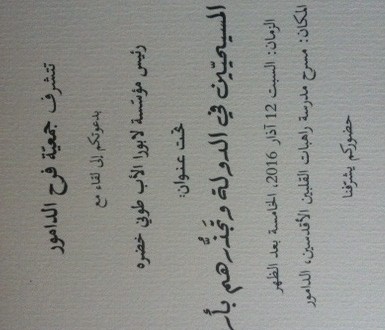 تتشرف جمعيّة فرح الدامور
بدعوتكم إلى لقاء مع
رئيس مؤسّسة لابورا الأب طوني خضره
تحت عنوان:
المسيحيّين في الدولة وتجذّرهم
الزمان: السبت 12 آذار 2016، الخامسة بعد الظهر
المكان: مسرح مدرسة راهبات القلبين الأقدسين، الدامور
حضوركم يشرّفنا